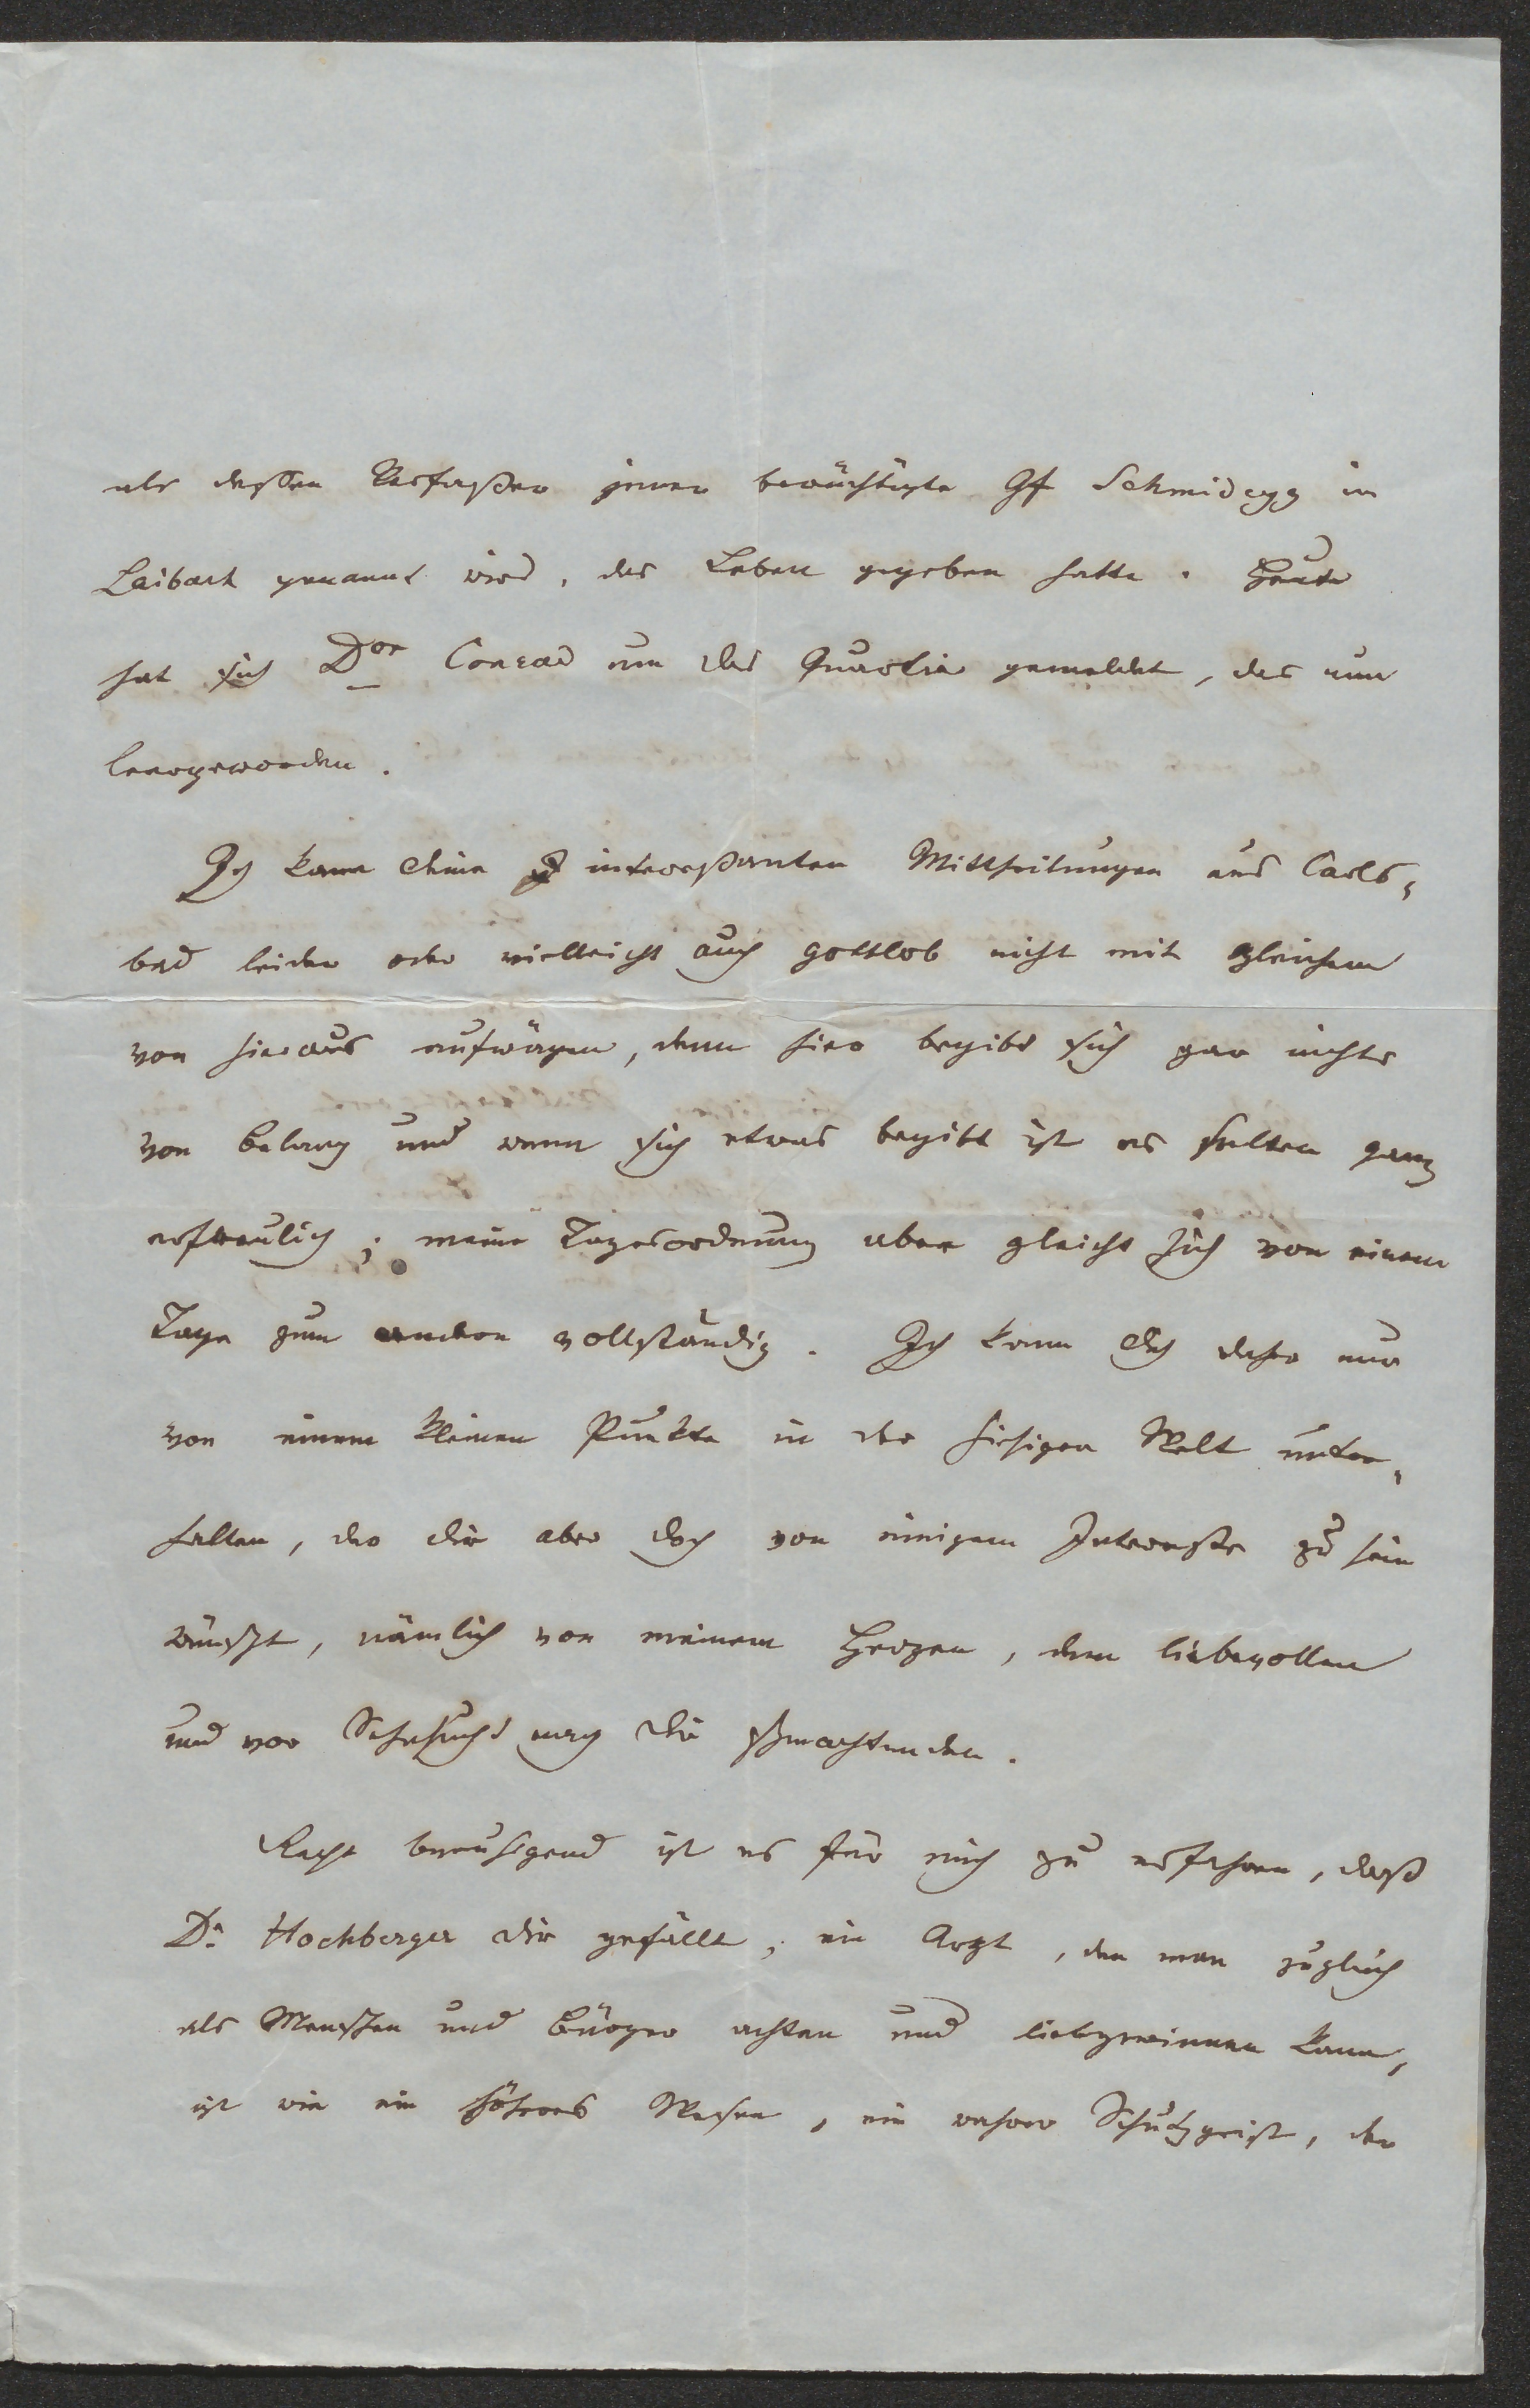 als deßen Verfaßer jener berüchtigte Gf Schmidegg in
Laibach genannt wird, das Leben gegeben hatte. Heute
hat sich Dor Conrad um das Quartier gemeldet, das nun
leergeworden.
Ich kann Deine interessanten Mittheilungen aus Carls-
bad leider oder vielleicht auch gottlob nicht mit gleichem
von hieraus aufwägen, denn hier begibt sich gar nichts
von Belang und wenn sich etwas begibt ist es selten ganz
erfreulich; meine Tagesordnung aber gleicht sich von einem
Tage zum andern vollständig. Ich kann Dich daher nur
von einem kleinen Punkte in der hiesigen Welt unter-
halten, der Dir aber doch von einigem Interesse zu sein
wünscht, nämlich von meinem Herzen, dem liebevollen
und vor Sehnsucht nach Dir schmachtenden.
Recht beruhigend ist es für mich zu erfahren, daß
Dr Hochberger Dir gefällt, ein Arzt, den man zugleich
als Menschen und Bürger achten und liebgewinnen kann,
ist wie ein höheres Wesen, ein wahrer Schutzgeist, der